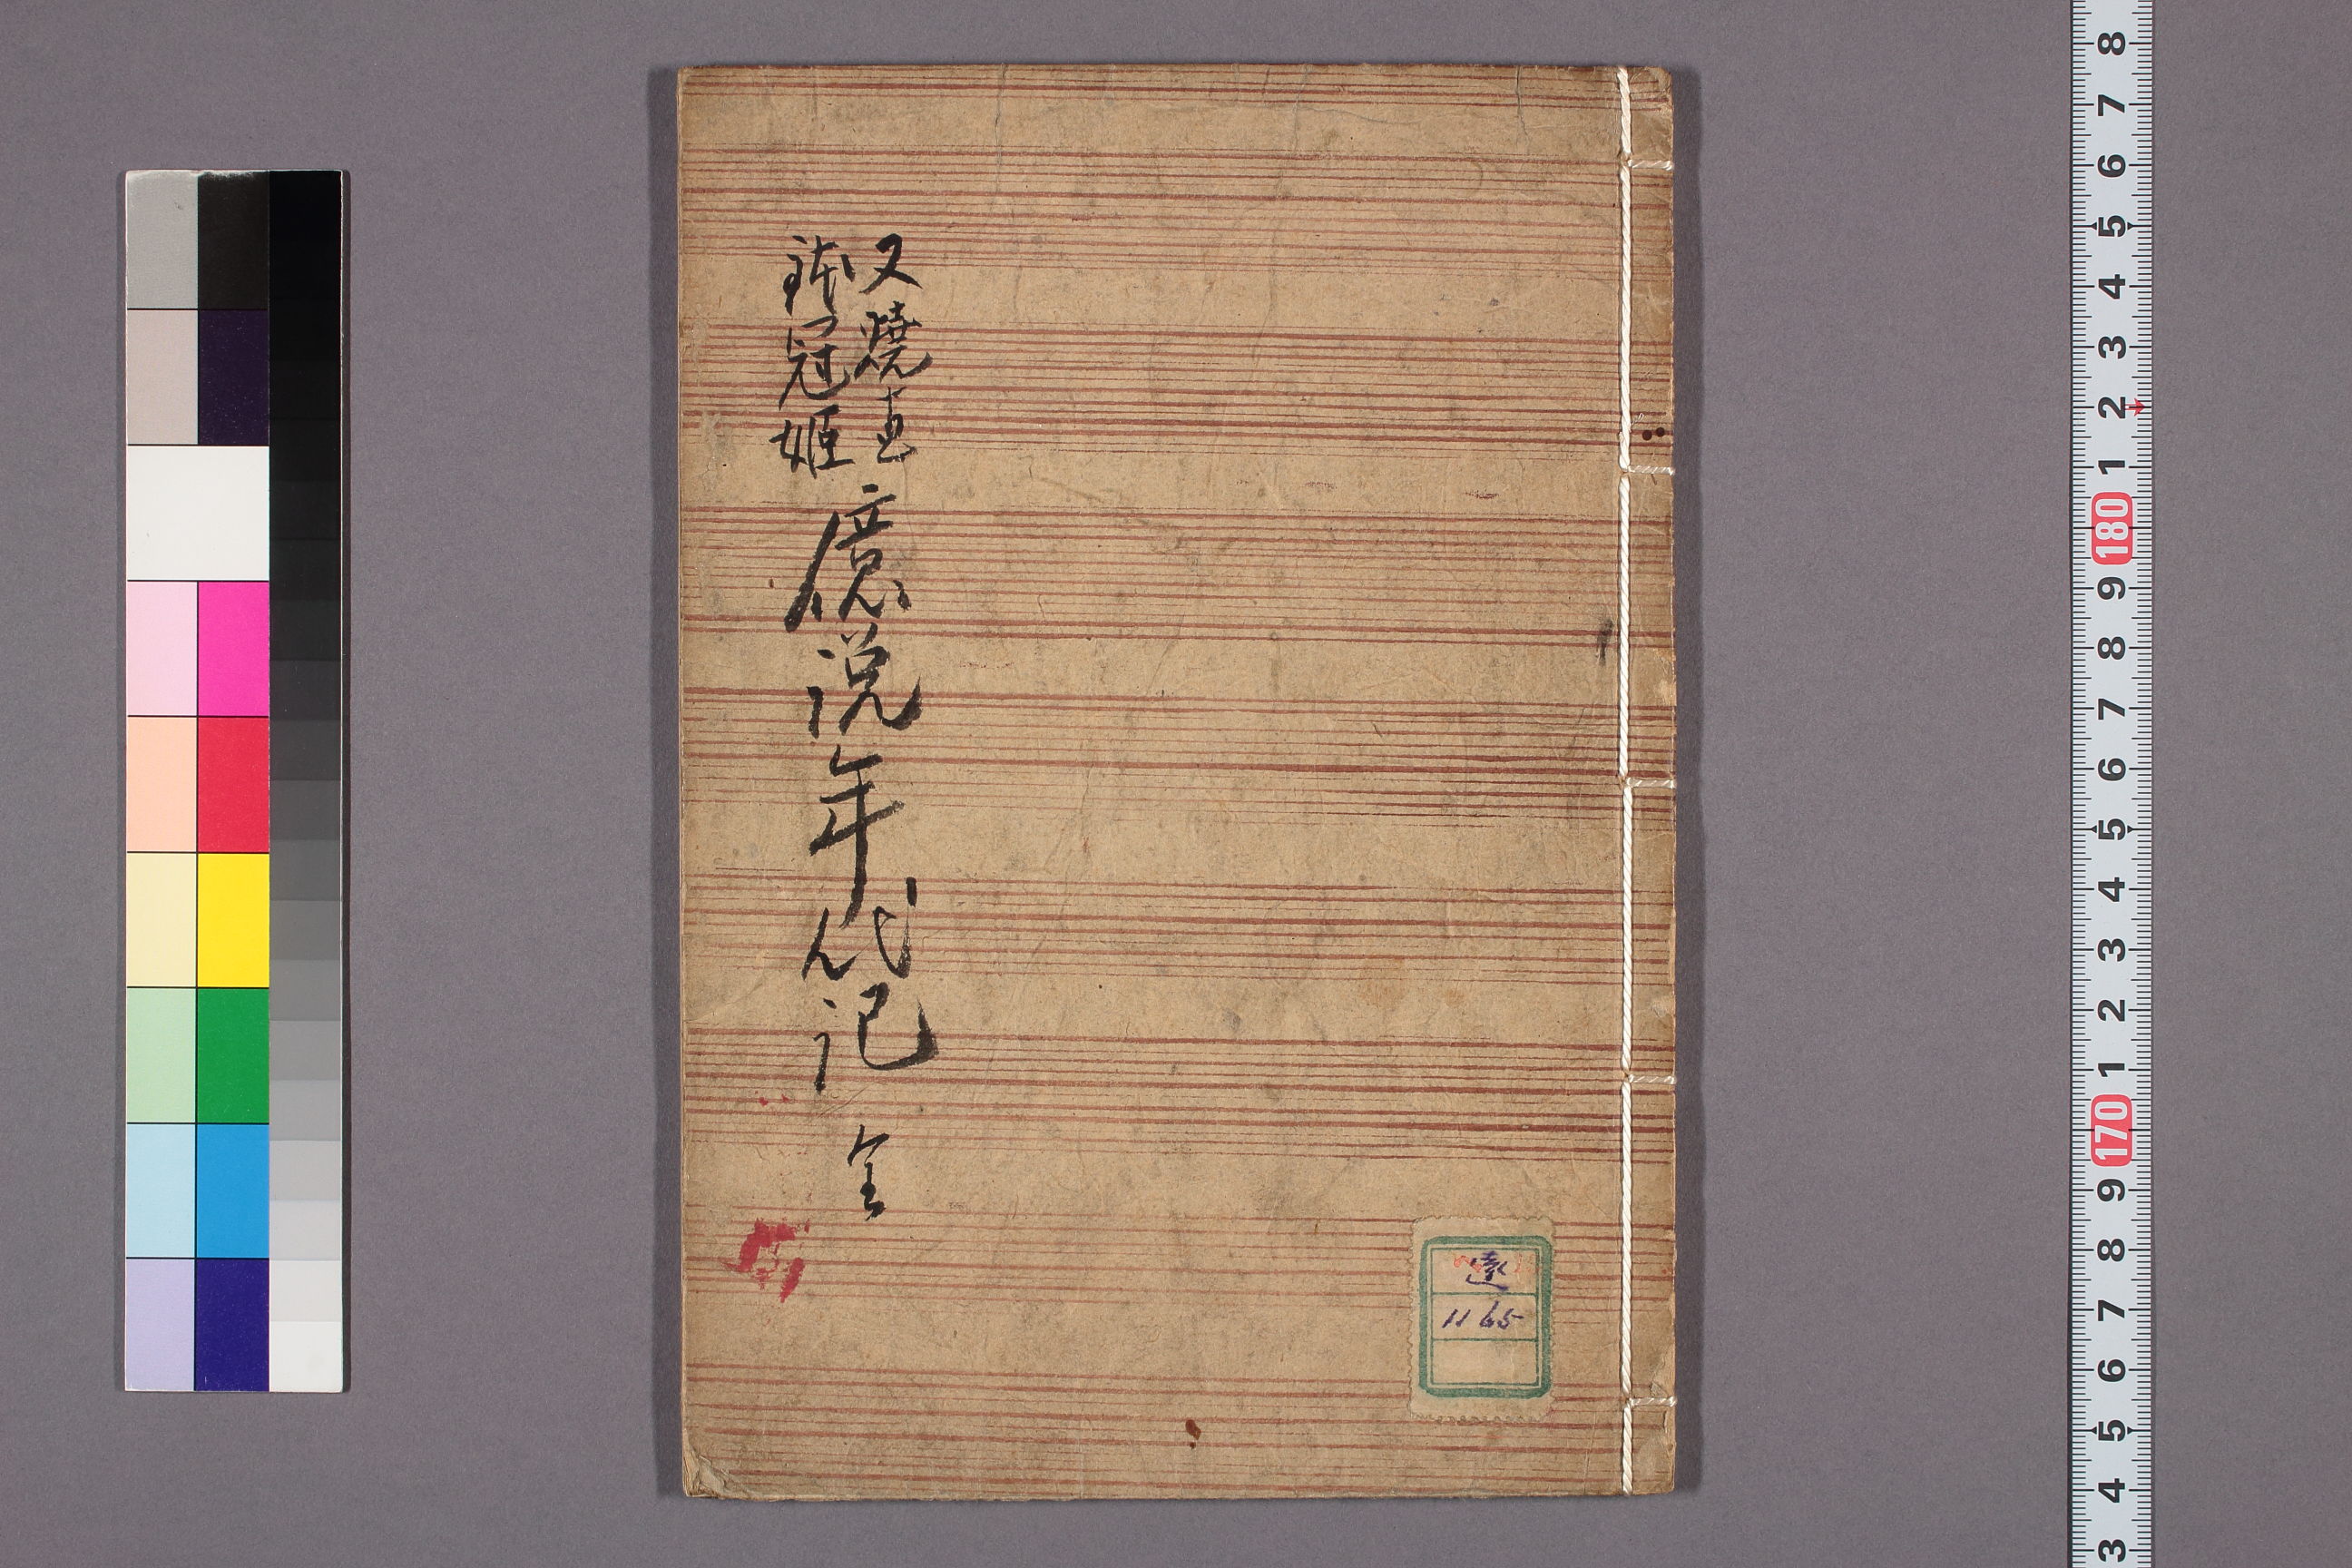 又焼直
鉢冠姫
億説年代記 全
遠
1165
8
7
6
5
4
3
2
1
180
9
8
7
6
5
4
3
2
1
170
9
8
7
6
5
4
3